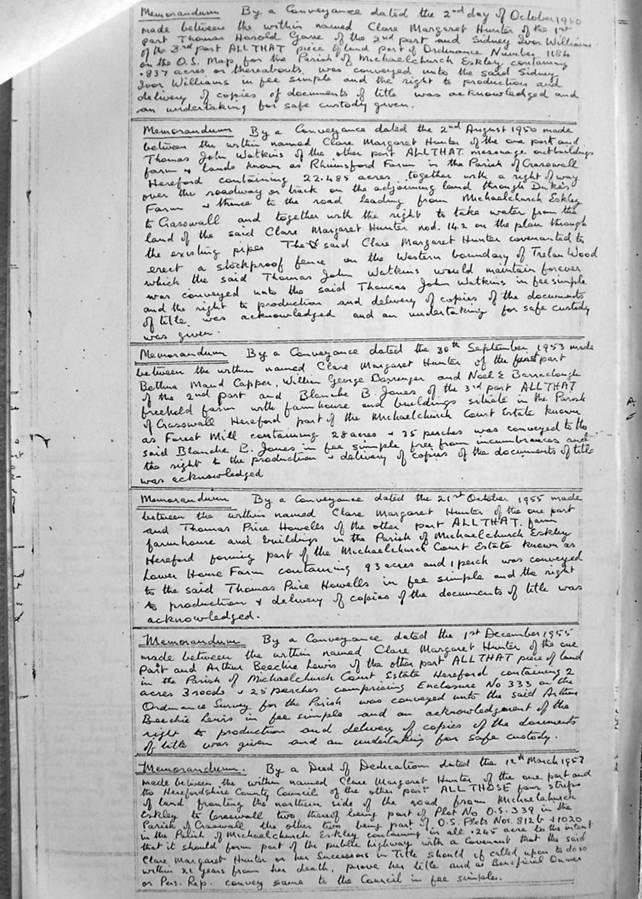 Memorandum By a Conveyance dated the 2nd day of October 1950
made between the within named Clare Margaret Hunter of the 1st
part Thomas Harold Garre of the 2nd part and Sidney Ivor Williams
of the 3rd part ALL THAT piece of land part of Ordnance Number 1184
on the O.S. Map for the Parish of Michaelchurch Eskley containing
.837 acres or thereabouts was conveyed unto the said Sidney
Ivor Williams in fee simple and the right to production and
delivery of copies of documents of title was acknowledged and
an undertaking for safe custody given.
Memorandum By a Conveyance dated the 2nd August 1950 made
between the within named Clare Margaret Hunter of the one part and
Thomas John Watkins of the other part ALL THAT messuage outbuildings
farm & lands known as Farm in the Parish of Craswall
Hereford containing 22.485 acres together with a right of way
over the roadway or track on the adjoining land through Dukes
Farm & thence to the road leading from Michaelchurch Eskley
to Craswall and together with the right to take water from the
land of the said Clare Margaret Hunter nod. 142 on the plan through
the existing pipes The said Clare Margaret Hunter covenanted to
erect a stockproof fence on the Western boundary of Trelan Wood
which the said Thomas John Watkins would maintain forever
was conveyed unto the said Thomas John Watkins in fee simple
and the right to production and delivery of copies of the documents
of title was acknowledged and an undertaking for safe custody
was given.
Memorandum By a Conveyance dated the 30th September 1953 made
between the within named Clare Margaret Hunter of the first part
Bettina Maud Capper, William George and Noel E Barraclough
of the 2nd part and Blanche B. Jones of the 3rd part ALL THAT
freehold farm with farmhouse and buildings situate in the Parish
of Crasswall Hereford part of the Michaelchurch Court Estate known
as Forest Mill containing 28 acres & 35 perches was conveyed to the
said Blanche B. Jones in fee simple free from incumbrances and
the right to the production & delivery of copies of the documents of title
was acknowledged
Memorandum By a Conveyance dated the 21st October 1955 made
between the within named Clare Margaret Hunter of the one part
and Thomas Price Howells of the other part ALL THAT farm
farmhouse and buildings in the Parish of Michaelchurch Eskley
Hereford forming part of the Michaelchurch Court Estate known as
Lower House Farm containing 93 acres and 1 perch was conveyed
to the said Thomas Price Howells in fee simple and the right
to production & delivery of copies of the documents of title was
acknowledged.
Memorandum By a Conveyance dated the 1st December 1955
made between the within named Clare Margaret Hunter of the one
Part and Arthur Beechie Lewis of the other part ALL THAT piece of land
in the Parish of Michaelchurch Court Estate Hereford containing 2
acres 3 roods & 25 perches comprising Enclosure No 333 on the
Ordnance Survey for the Parish was conveyed unto the said Arthur
Beechie Lewis in fee simple and an acknowledgment of the
right to production and delivery of copies of the documents
of title was given and an undertaking for safe custody.
Memorandum. By a Deed of Dedication dated the 12th March 1957
made between the within named Clare Margaret Hunter of the one part and
the Herefordshire County Council of the other part ALL THOSE four strips
of land fronting the northern side of the road from Michaelchurch
Eskley to Crasswall two thereof being part of Plot No O.S. 339 in the
Parish of Craswall the other two being part of O.S. Plots Nos 812b & 1020
in the Parish of Michaelchurch Eskley containing in all .245 acre to the intent
that it should form part of the public highway with a Covenant that the said
Clare Margaret Hunter or her Successors in Title should if called upon to do so
within 21 years from her death, prove her title and as Beneficial Owner
or Pers. Rep. convey same to the Council in fee simple.